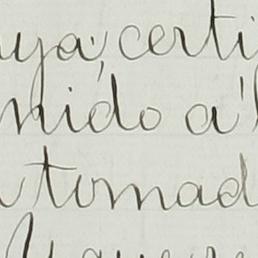 uya, certi
nido a'
tomad